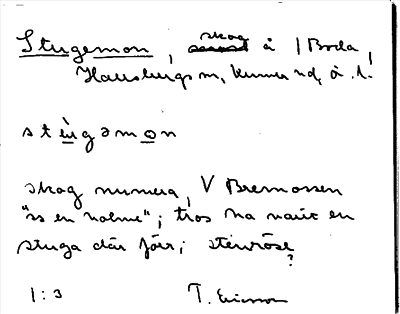 Stugemon, skog å 1 Boda,
Hamsbergs m, Kumra nd, å. l.
stègəmon
skog numera, V Bremossen
"ss en holme"; tros ha varit en
stuga där förr; stenröse?
1:3 T. Ericsson